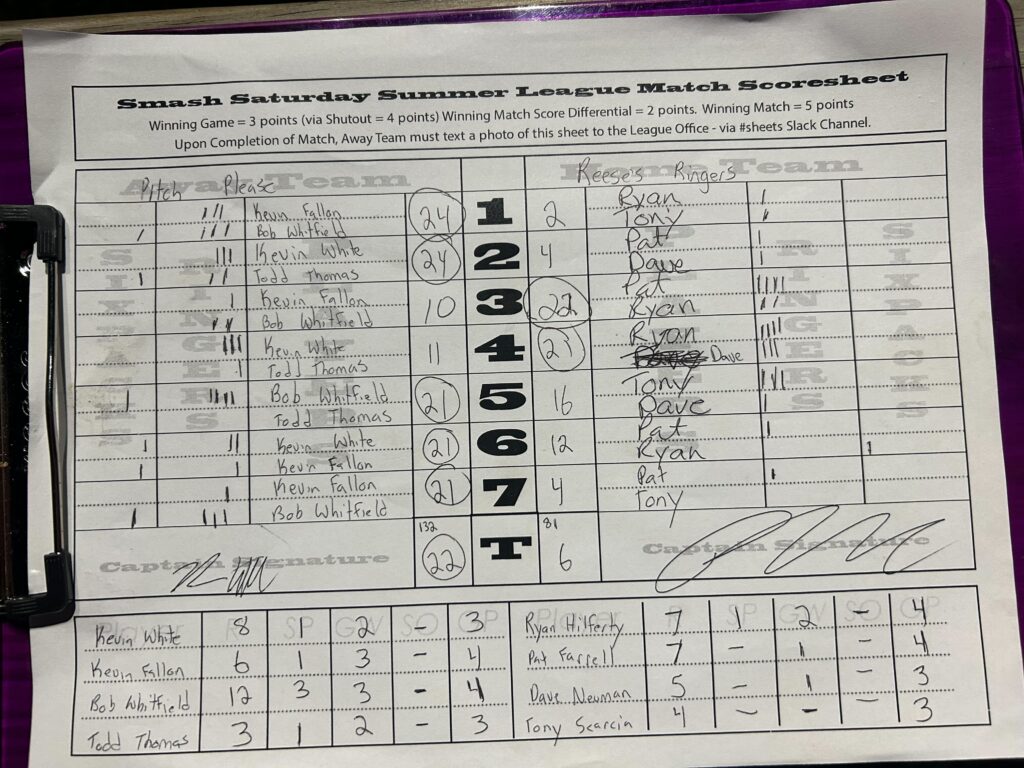 Smash Saturday Summer League Match Scoresheet
Winning Game = 3 points (via Shutout = 4 points) Winning Match Score Differential = 2 points. Winning Match = 5 points
Upon Completion of Match, Away Team must text a photo of this sheet to the League Office - via #sheets Slack Channel.
Away Team Home Team
Pitch Please Reese's Ringers
Kevin Fallon 24 1 2 Ryan
Bob Whitfield Tony
Kevin White 24 2 4 Pat
Todd Thomas Dave
Kevin Fallon 10 3 22 Pat
Bob Whitfield Ryan
Kevin White 11 4 23 Ryan
Todd Thomas Dave
Bob Whitfield 21 5 16 Tony
Todd Thomas Dave
Kevin White 21 6 12 Pat
Kevin Fallon Ryan
Kevin Fallon 21 7 4 Pat
Bob Whitfield Tony
SIXPACKS RINGERS RINGERS SIXPACKS
132 81
Captain Signature 22 T 6 Captain Signature
Player R SP GW SO GP Player R SP GW SO GP
Kevin White 8 1 2 - 3 Ryan Hilferty 7 1 2 - 4
Kevin Fallon 6 1 3 - 4 Pat Farrell 7 - 1 - 4
Bob Whitfield 12 3 3 - 4 Dave Neuman 5 - 1 - 3
Todd Thomas 3 1 2 - 3 Tony Searcia 4 - - - 3